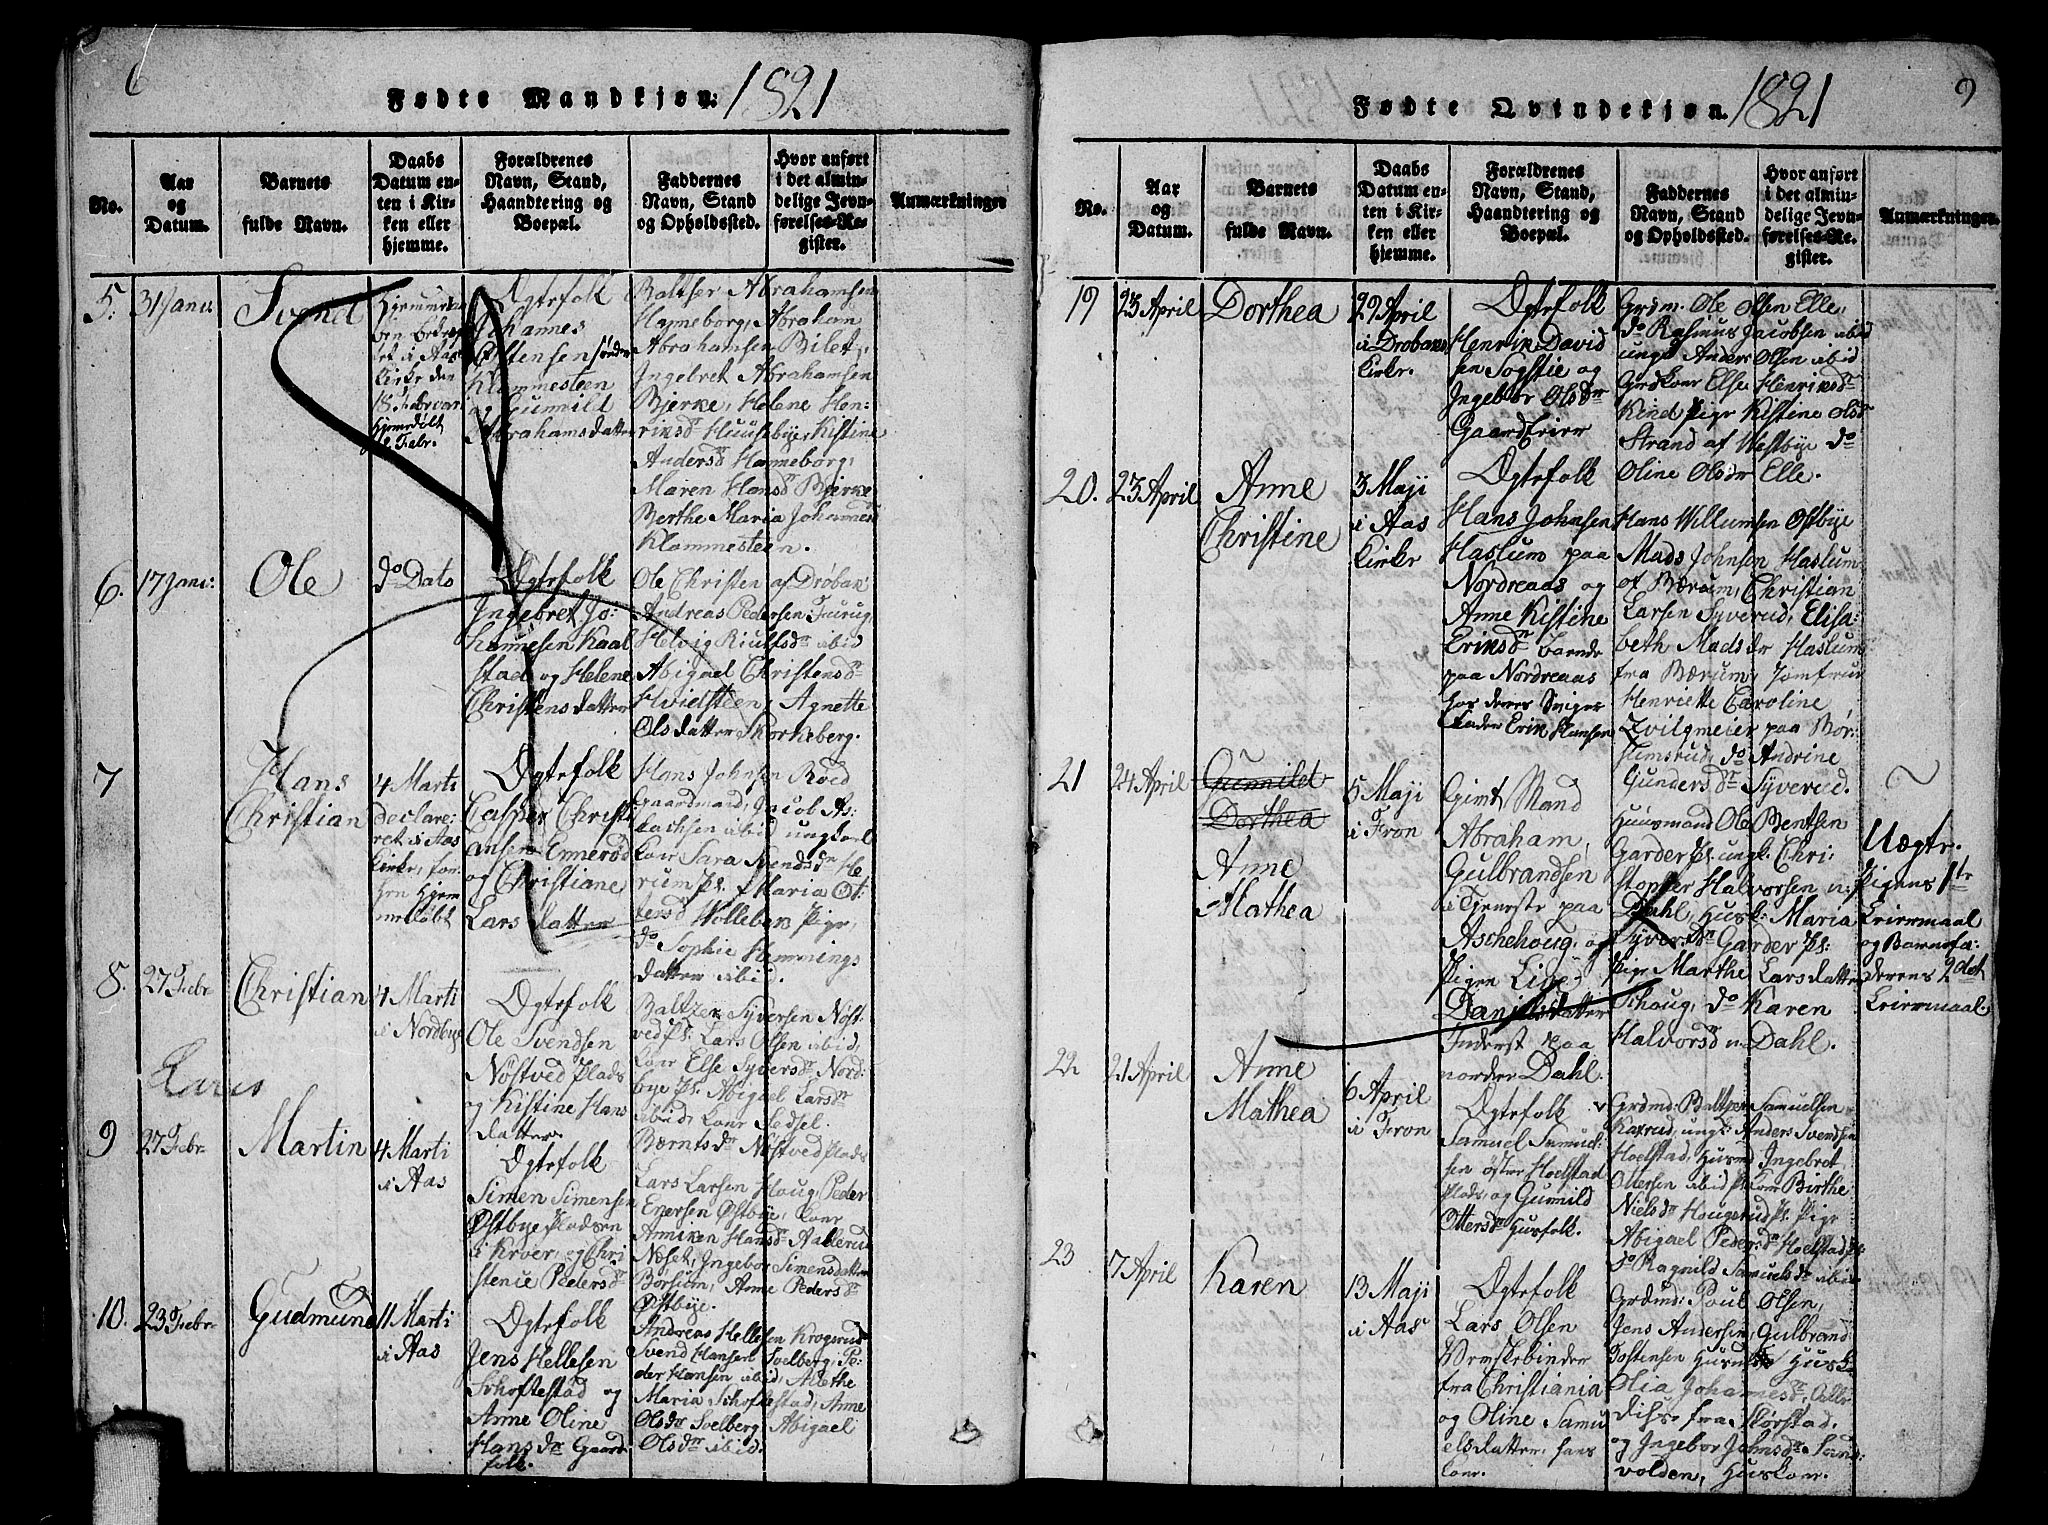 6
Fødte Mandkjøn: 1821
No.
Aar
og
Datum.
Barnets
fulde Navn.
Daabs
Datum en-
ten i Kir-
ken eller
hjemme.
Forældrenes
Navn, Stand,
Haandtering og
Boepæl.
Faddernes
Navn, Stand
og Opholdssted.
Hvor anført
i det almin-
delige Jevn-
førelses-Re-
gister.
Anmærkninger
5.
31 Janu:
Svend
Kirke den
18 Februari
Hjemedøbt
Febr.
Ogtefolk
Johannes
Klommesteen
og Gunnild
Abrahamsdatter
Baltser Abrahamsen
Hanneborg, Abraham
Abrahamsen Bilet,
Ingebret Abrahamsen
Bjerke, Helene Hen-
riksdr Huusebye, Kistine
Andersdr Hanneborg,
Maren Hansdr Bjerke
Berthe Maria Johannesd
Klommesteen.
6.
17 Janu:
Ole
do Dato
Ogtefolk
Ingebret Jo:
hannesen Kaal
stad og Helene
Christensdatter
Ole Christen af Drøbak
Andreas Pedersen Furug,
Helvig Riulfsdr ibid
Abigael Christensdr
Hvidsteen, Agnette
Olsdatter Skorkeberg.
7
Hans
Christian
4 Marti
declare:
ret i Aas
Kirke, for-
hen hjem
medøbt
Ogtefolk
Casper Christi
ansen Ennersd
og Christiane
Larsdatter
Hans Johnsen Roed
Gaardmand, Jacob As:
lachsen ibid ungkarl
Kone Sara Svendsdr He
rum Pl. Maria Ot:
tersdr Wollebæk Pige,
do Sophie Hemmings
datter ibid.
8.
27 Febr
Christian
4 Marti
i Nordbye
Ogtefolk
Ole Svendsen
Nøstved Plads
og Kistine Hans
datter.
Baltzer Syversen Nøst-
ved Pl. Lars Olsen ibid,
Kone Else Syversdr Nord:
bye Pl. Abigael Larsdr
ibid, Kone Sedsel
Berntsdr Nøstved Plads
Lars
9
27 Febr
Martin
4 Marti
i Aas
Ogtefolk
Simen Simensen
Østbye Pladsen
i Kroer, og Chri
stence Pedersdr
Lars Larsen Houg, Peder
Enersen Østbye, Kone
Anniken Hansdr Aallerud
Noset, Ingebor Simensdatter
Borsum, Anne Pedersdr
Østbye.
10.
23 Febr
Gudmund
11 Marti
i Aas
Ogtefolk
Jens Hellesen
Schoftestad og
Anne Oline
Hansdr Gaard
folk.
Andreas Hellesen Krogsrud
Svend Hansen Solberg, Pe-
der Hansen ibid, Alethe
Maria Schoftestad, Anne
Olsdr Solberg, Abigael
Olsdr ibid.
9
Fødte Qvindekjøn. 1821
No.
Aar
og
Datum.
Barnets
fulde Navn.
Daabs
Datum en-
ten i Kir-
ken eller
hjemme.
Forældrenes
Navn, Stand,
Haandtering og
Boepæl.
Faddernes
Navn, Stand
og Opholdssted.
Hvor anført
i det almin-
delige Jevn-
førelses-Re-
gister.
Anmærkninger.
19
23 April
Dorthea
29 April
i Drobaks
Kirke.
Ogtefolk
Henrik David
sen Sogstie og
Ingebor Olsdr
Gaardeier
Grdm. Ole Olsen Elle,
do Rasmus Jacobsen ibid
ungk Anders Olsen ibid
Grdkone Else Henriksdr
Kind, Pige Kistine Olsdr
Strand af Westbye do
Oline Olsdr Elle.
20.
23 April
Anne
Christine
3 Maji
i Aas
Kirke
Ogtefolk
Hans Johnsen
Haslum paa
Nordreaas og
Anne Kistine
Eriksdr
paa Nordreaas
hos deres Sviger
Fader Erik Hansen
Hans Willumsen Østbye
Mads Johnsen Haslum
af Bærum, Christian
Larsen Syverud, Elisa:
beth Madsdr Haslum
fra Bærum, Jomfrue
Henriette Caroline
Zvilgmeier paa Bør:
sumsrud, do Andrine
Gundersdr Syverud.
21
24 April
Gunnild
Dorthea
Anne
Mathea
5 Maji
i Fron
Givt Mand
Abraham
Gulbrandsen
i Tjeneste paa
Aschehoug, og
Pigen Lise
Danielsdatter
Inderst paa
nordre Dahl.
Huusmand Ole Bentsen
Garder Pl. ungk. Chri:
stopher Halvorsen n:
Dahl, Husk: Maria
Syversdr Garder Pl:
Pige Marthe Larsdatter
Schoug, do Karen
Halvorsd n: Dahl.
Uægte.
Pigens 1te
Leiermaal
og Barnefa:
derens 2det
Leiermaal.
22
21 April
Anne
Mathea
6 April
i Fron
Ogtefolk
Samuel Samuel:
sen øster Hoelstad
Plads, og Gunnild
Ottersdr Husfolk.
Grdmd: Baltzer Samuelsen
Kaxrud, ungk: Anders Svendsen
Hoelstad, Husmd Ingebret
Ottersen ibid Pl Kone Birthe
Nielsdr Hougerud Pl. Pige
Abigael Pedersdr Hoelstad Pl:
do Ragnild Samuelsdr ibid
23
7 April
Karen
13 Maji
i Aas
Ogtefolk
Lars Olsen
Væskebinder
fra Christiania
og Oline Samu
elsdatter, hans
Kone.
Grdmd: Poul Olsen,
Jens Andersen, Gulbrand
Tostensen Husmd Husk
Olia Johannesdr,
fra Skorstad,
og Ingebor Johnsdr Sand:
volden, Huskone.